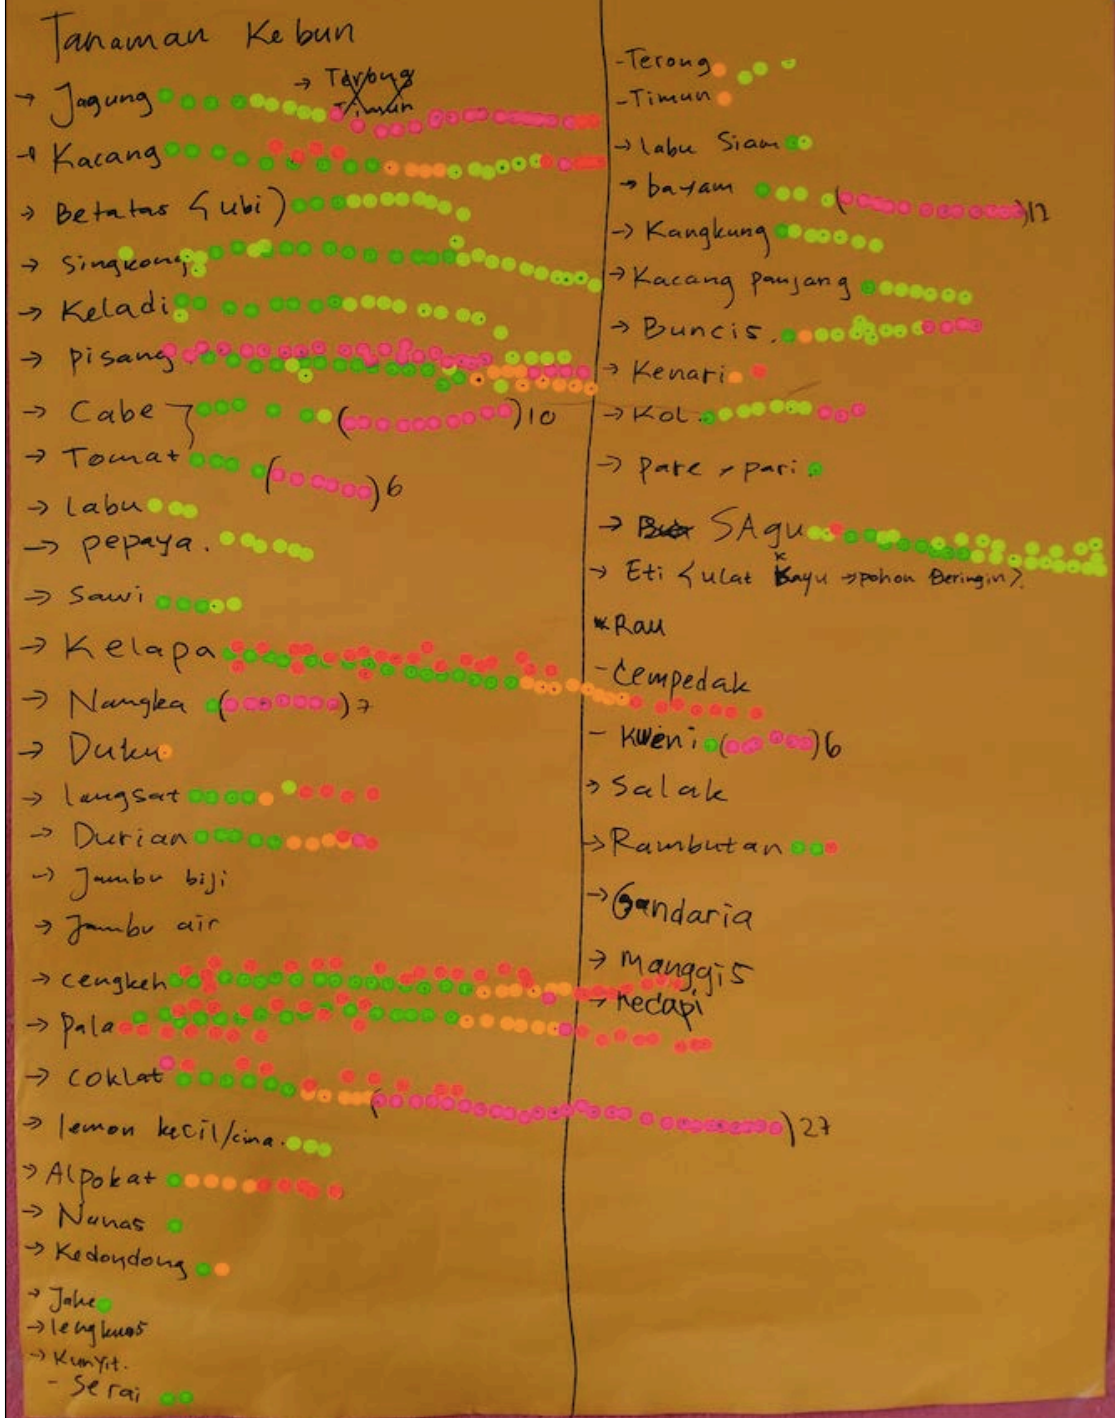 Tanaman Kebun
→ Jagung
→ Terong
Timun
→ Kacang
→ Betatas (ubi)
→ Singkong
→ Keladi
→ Pisang
→ Cabe ( ) 10
→ Tomat ( ) 6
→ labu
→ pepaya.
→ Sawi
→ Kelapa
→ Nangka ( ) 7
→ Duku
→ langsat
→ Durian
→ Jambu biji
→ Jambu air
→ cengkeh
→ Pala
→ coklat ( ) 27
→ lemon kecil/cina.
→ Alpokat
→ Nanas
→ Kedondong
→ Jahe
→ lengkuas
→ Kunyit.
- Serai
- Terong
- Timun
→ labu Siam
→ bayam ( ) 12
→ Kangkung
→ Kacang panjang
→ Buncis.
→ Kenari
→ Kol.
→ Pare > pari
→ SAgu
→ Eti (ulat Kayu → pohon Beringin).
Rau
- Cempedak
- Kweni ( ) 6
→ Salak
→ Rambutan
→ Gandaria
→ Manggis
→ Kecapi